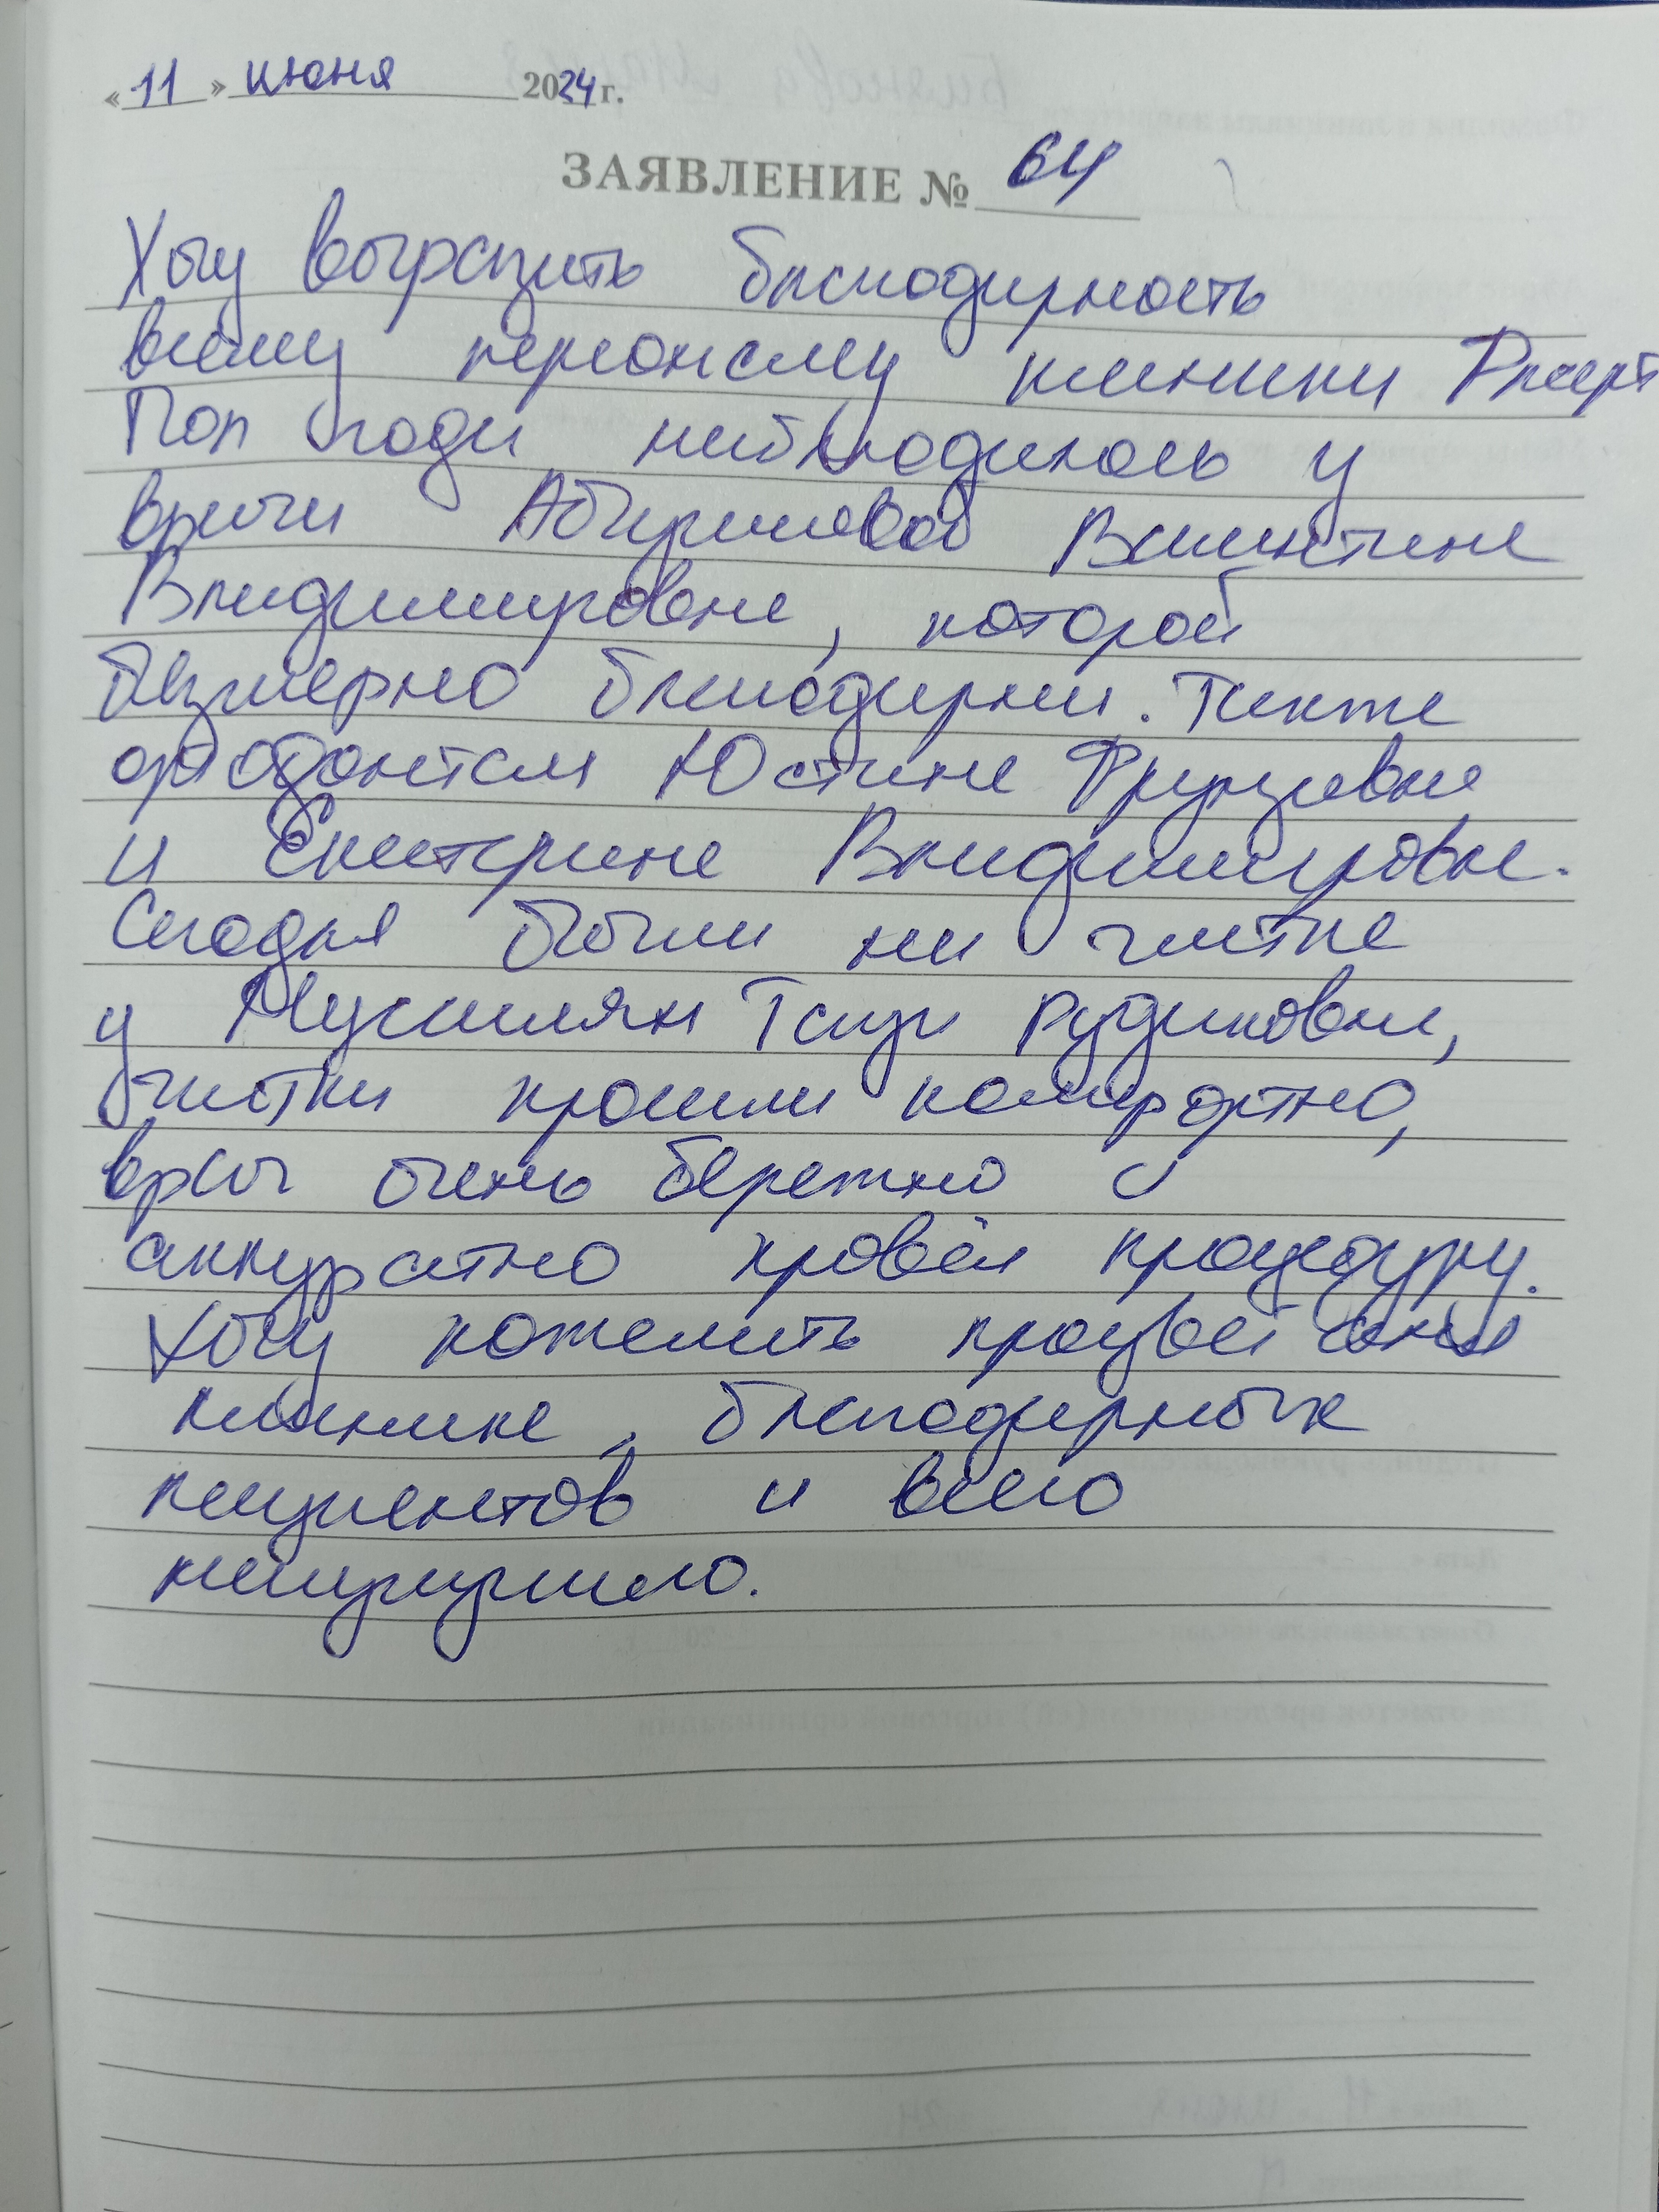 «11» июня 2024 г.
ЗАЯВЛЕНИЕ № 64
Хочу выразить благодарность
всему персоналу клиники
Пол года наблюдалась у
врача Абчурмаевой Валентине
Владимировне, которой
безмерно благодарна. Также
ортодонтам Юстине Фрунзевне
и Екатерине Владимировне.
Сегодня были на чистке
у Мусаилян Таги Рудиковны,
чистки прошли комфортно,
врач очень бережно и
аккуратно провёл процедуру.
Хочу пожелать процветания
клинике, благодарных
пациентов и всего
наилучшего.